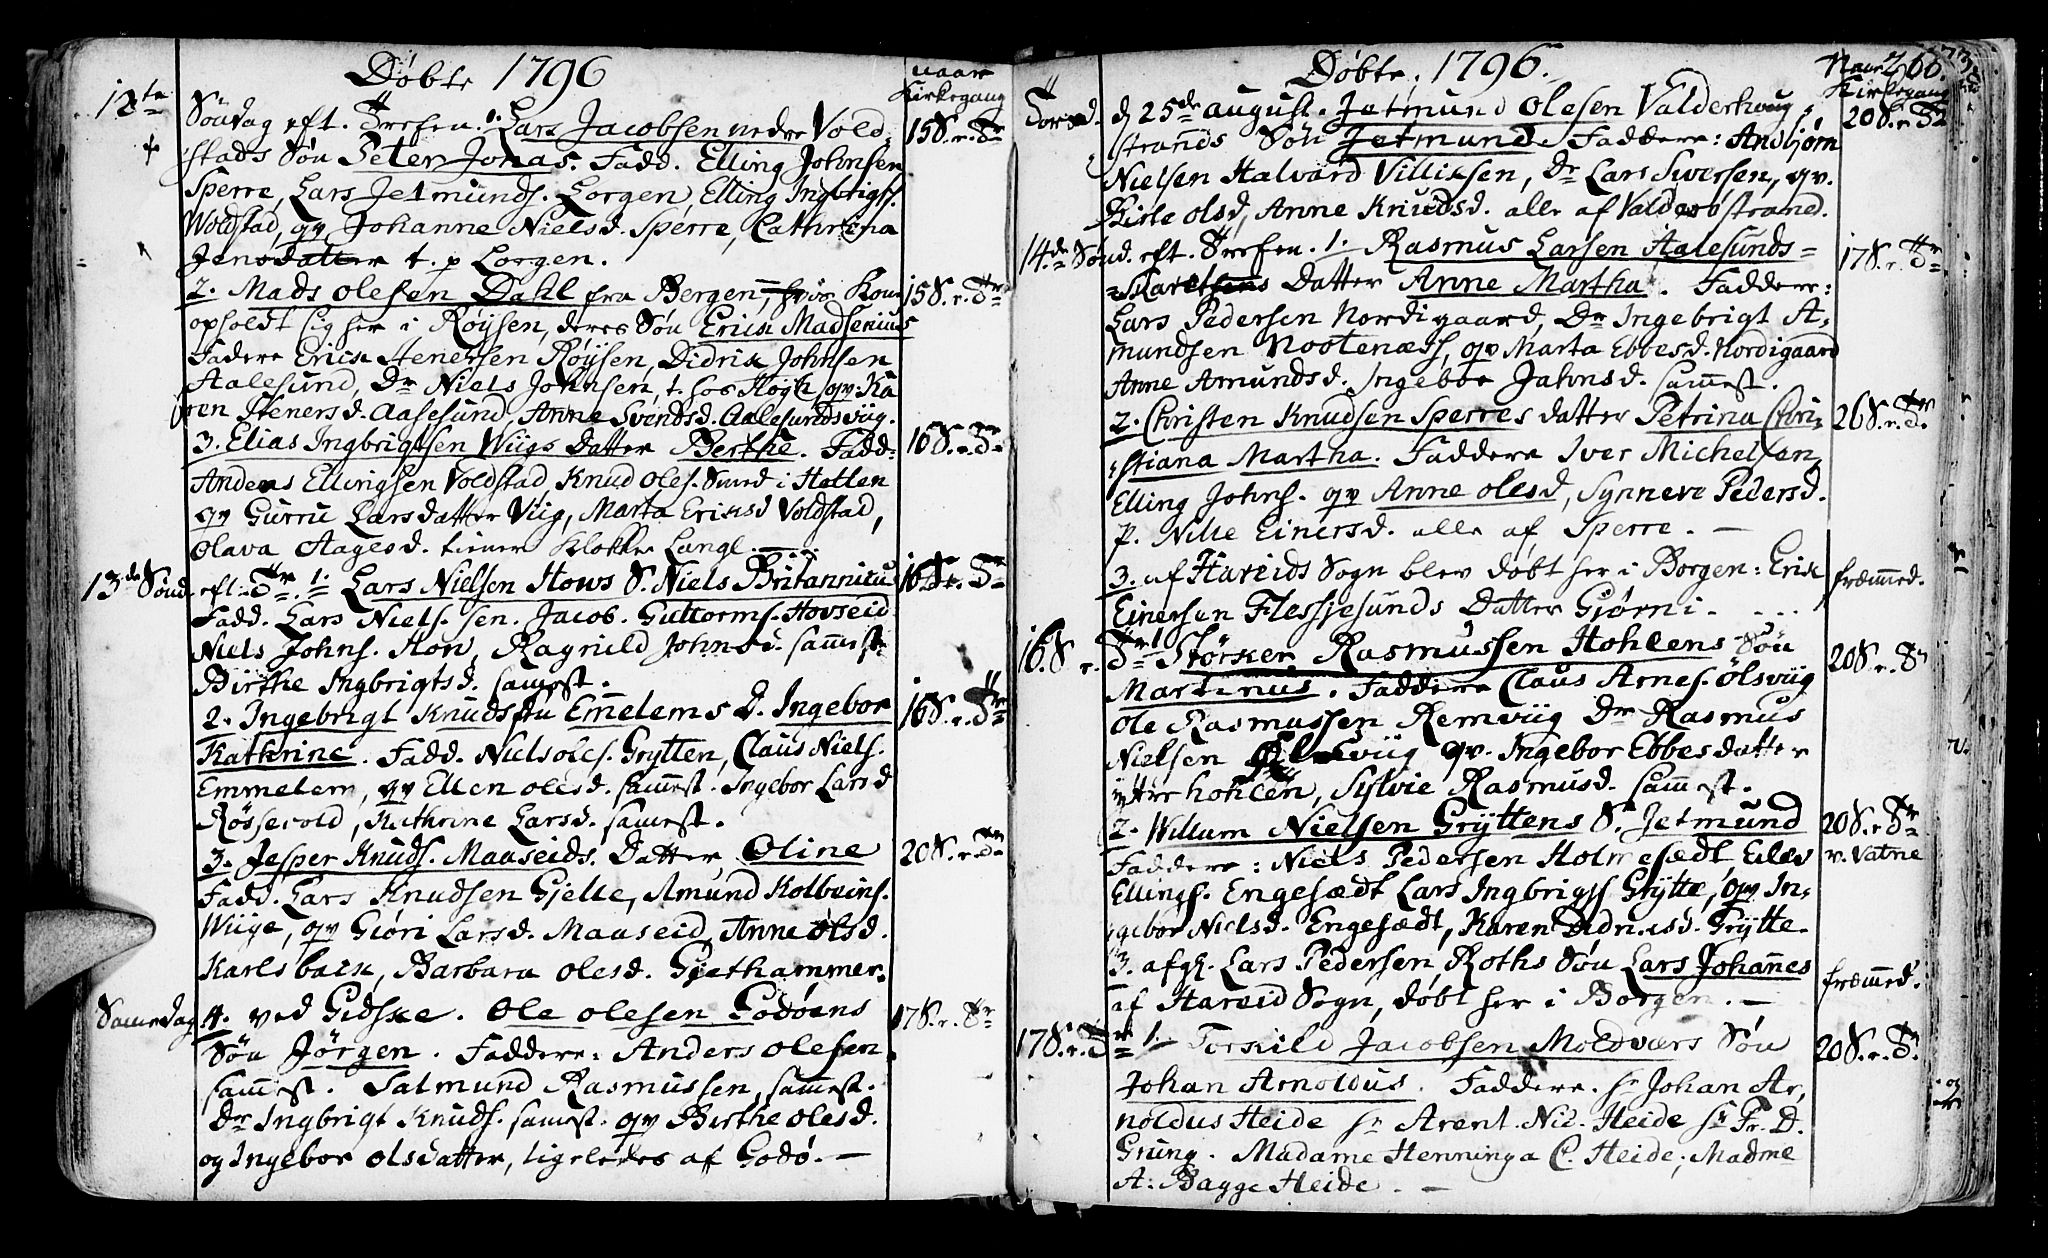 Döbte 1796
naar
Kirkegang
12te
Söndag eft. Trefen. 1. Lars Jacobsen nedre Vold
stads Sön Peter Jonas. Fadd. Elling Johnsen
Sperre, Lars Jetmunds. Lorgen, Elling Ingbrigts.
Woldstad, qv Johanne Nielsd. Sperre, Cathrina
Jensdatter t. p Lorgen.
15 S. r. Tr
2. Mads olesen Dahl fra Bergen, hvis Kone
opholdt sig her i Röysen, deres Sön Erick Madsenius
15 S. r. Tr
Faddere Erick Stenersen Röysen, Didrik Johnsen
Aalesund, Dr Niels Johnsen, t. hos Høgh qv: Ka
ren Stenersd. Aalesund, Anne Svendsd. Aalesundsvog.
3. Elias Ingbrigtsen Wiigs Datter Berthe. Fadd:
16 S. r. Tr
Anders Ellingsen Voldstad Knud oles. Sund i Hatlen
qv Gurru Larsdatter Viig, Marta Eriksd Voldstad,
Olava Aagesd. tiener Klokker Langl.
13de Sönd. eft. Tr. 1. Lars Nielsen Hows S. Niels Britannicu
16 S. r. Tr
Fadd. Lars Nielssen. Jacob. Guttorms. Hovseid
Niels Johns. Hov, Ragnild Johnsd. sammest
Birthe Ingbrigtsd. samest.
2. Ingebrigt Knuds fra Emmelems D. Ingebor
16 S. r. Tr
Kathrine. Fadd. Niels oles. Grytten, Claus Niels.
Emmelem, qv Ellen olesd. sammest. Ingebor Larsd
Rössevold, Kathrine Larsd. samest.
3. Jesper Knuds. Maaseids. Datter Oline
20 S. r. Tr
Fadd. Lars Knudsen Gjelle, Amund Kolbeins.
Wiige, qv Giöri Larsd. Maaseid, Anne olsd.
Karlsbakk, Barbara olesd. Gjethammer.
Samedag 4. ved Gidske. Ole olesen Godöens
17 S. r. Tr
Sön Jörgen. Faddere: Anders olesen
sammest. Salmund Rasmussen, samest.
Dr Ingbrigt Knuds. samest. qv Birthe olesd.
og Ingebor olsdatter, ligeledes af Godö.
Döbte, 1796.
Naar 266.
Kirkegang
Torsd. d 25de august. Jetmund Olesen Valderhoug
20 S. r. Tr
strands Sön Jetmund. Faddere: Andbjörn
Nielsen Halvard Villiksen, Dr Lars Sversen, qv.
olsd, Anne Knudsd. alle af Valderöstrand.
14de Sönd. eft. Trefen. 1. Rasmus Larsen Aalesunds-
17 S. r. Tr
Datter Anne Martha. Faddere:
Lars Pedersen Nordigaard, Dr Ingebrigt A-
mundsen Nostenæss, qv Marta Ebbesd. Nordigaard
Anne Amundsd. Ingebor Jahnsd. samest.
2. Christen Knudsen Sperres datter Petrina Chri-
26 S. r. Tr
stiana Martha. Faddere Iver Michelsen
Elling Johns. qv Anne olesd, Synneve Pedersd.
P. Nille Einersd. alle af Sperre.
3. af Hareids Sogn blev döbt her i Borgen: Erik
fræmmed.
Einersen Flessjesunds Datter Gjörni.
16. S. r. Tr 1. Störker Rasmussen Hohlens Sön
20 S. r. Tr
Martinus. Faddere Claus Arnes. Ölsviig
Ole Rasmussen Remviig Dr Rasmus
Nielsen qv. Ingebor Ebbesdatter
ytter hohlen, Sylvie Rasmusd. sammest.
2. Willum Nielsen Gryttens S. Jetmund
20 S. r Tr
v. Vatne
Faddere: Niels Pedersen Holmesædt Eilev
Ellings. Engesædt Lars Ingbrigts Grytte, qv In-
gebor Nielsd. Engesædt, Karen Didriksd. Grytte.
3. afg. Lars Pedersen Roths Sön Lars Johannes
fræmmed.
af Hareid Sogn, döbt her i Borgen.
17 S. r. Tr 1. Torkild Jacobsen Moldværs Sön
20 S. r. Tr
Johan Arnoldus. Faddere. sr Johan Ar,
noldus Heide sr Arent. Nic. Heide sr Fr. D.
Grung. Madame Henninga C. Heide; Madme
A: Bagge Heide.